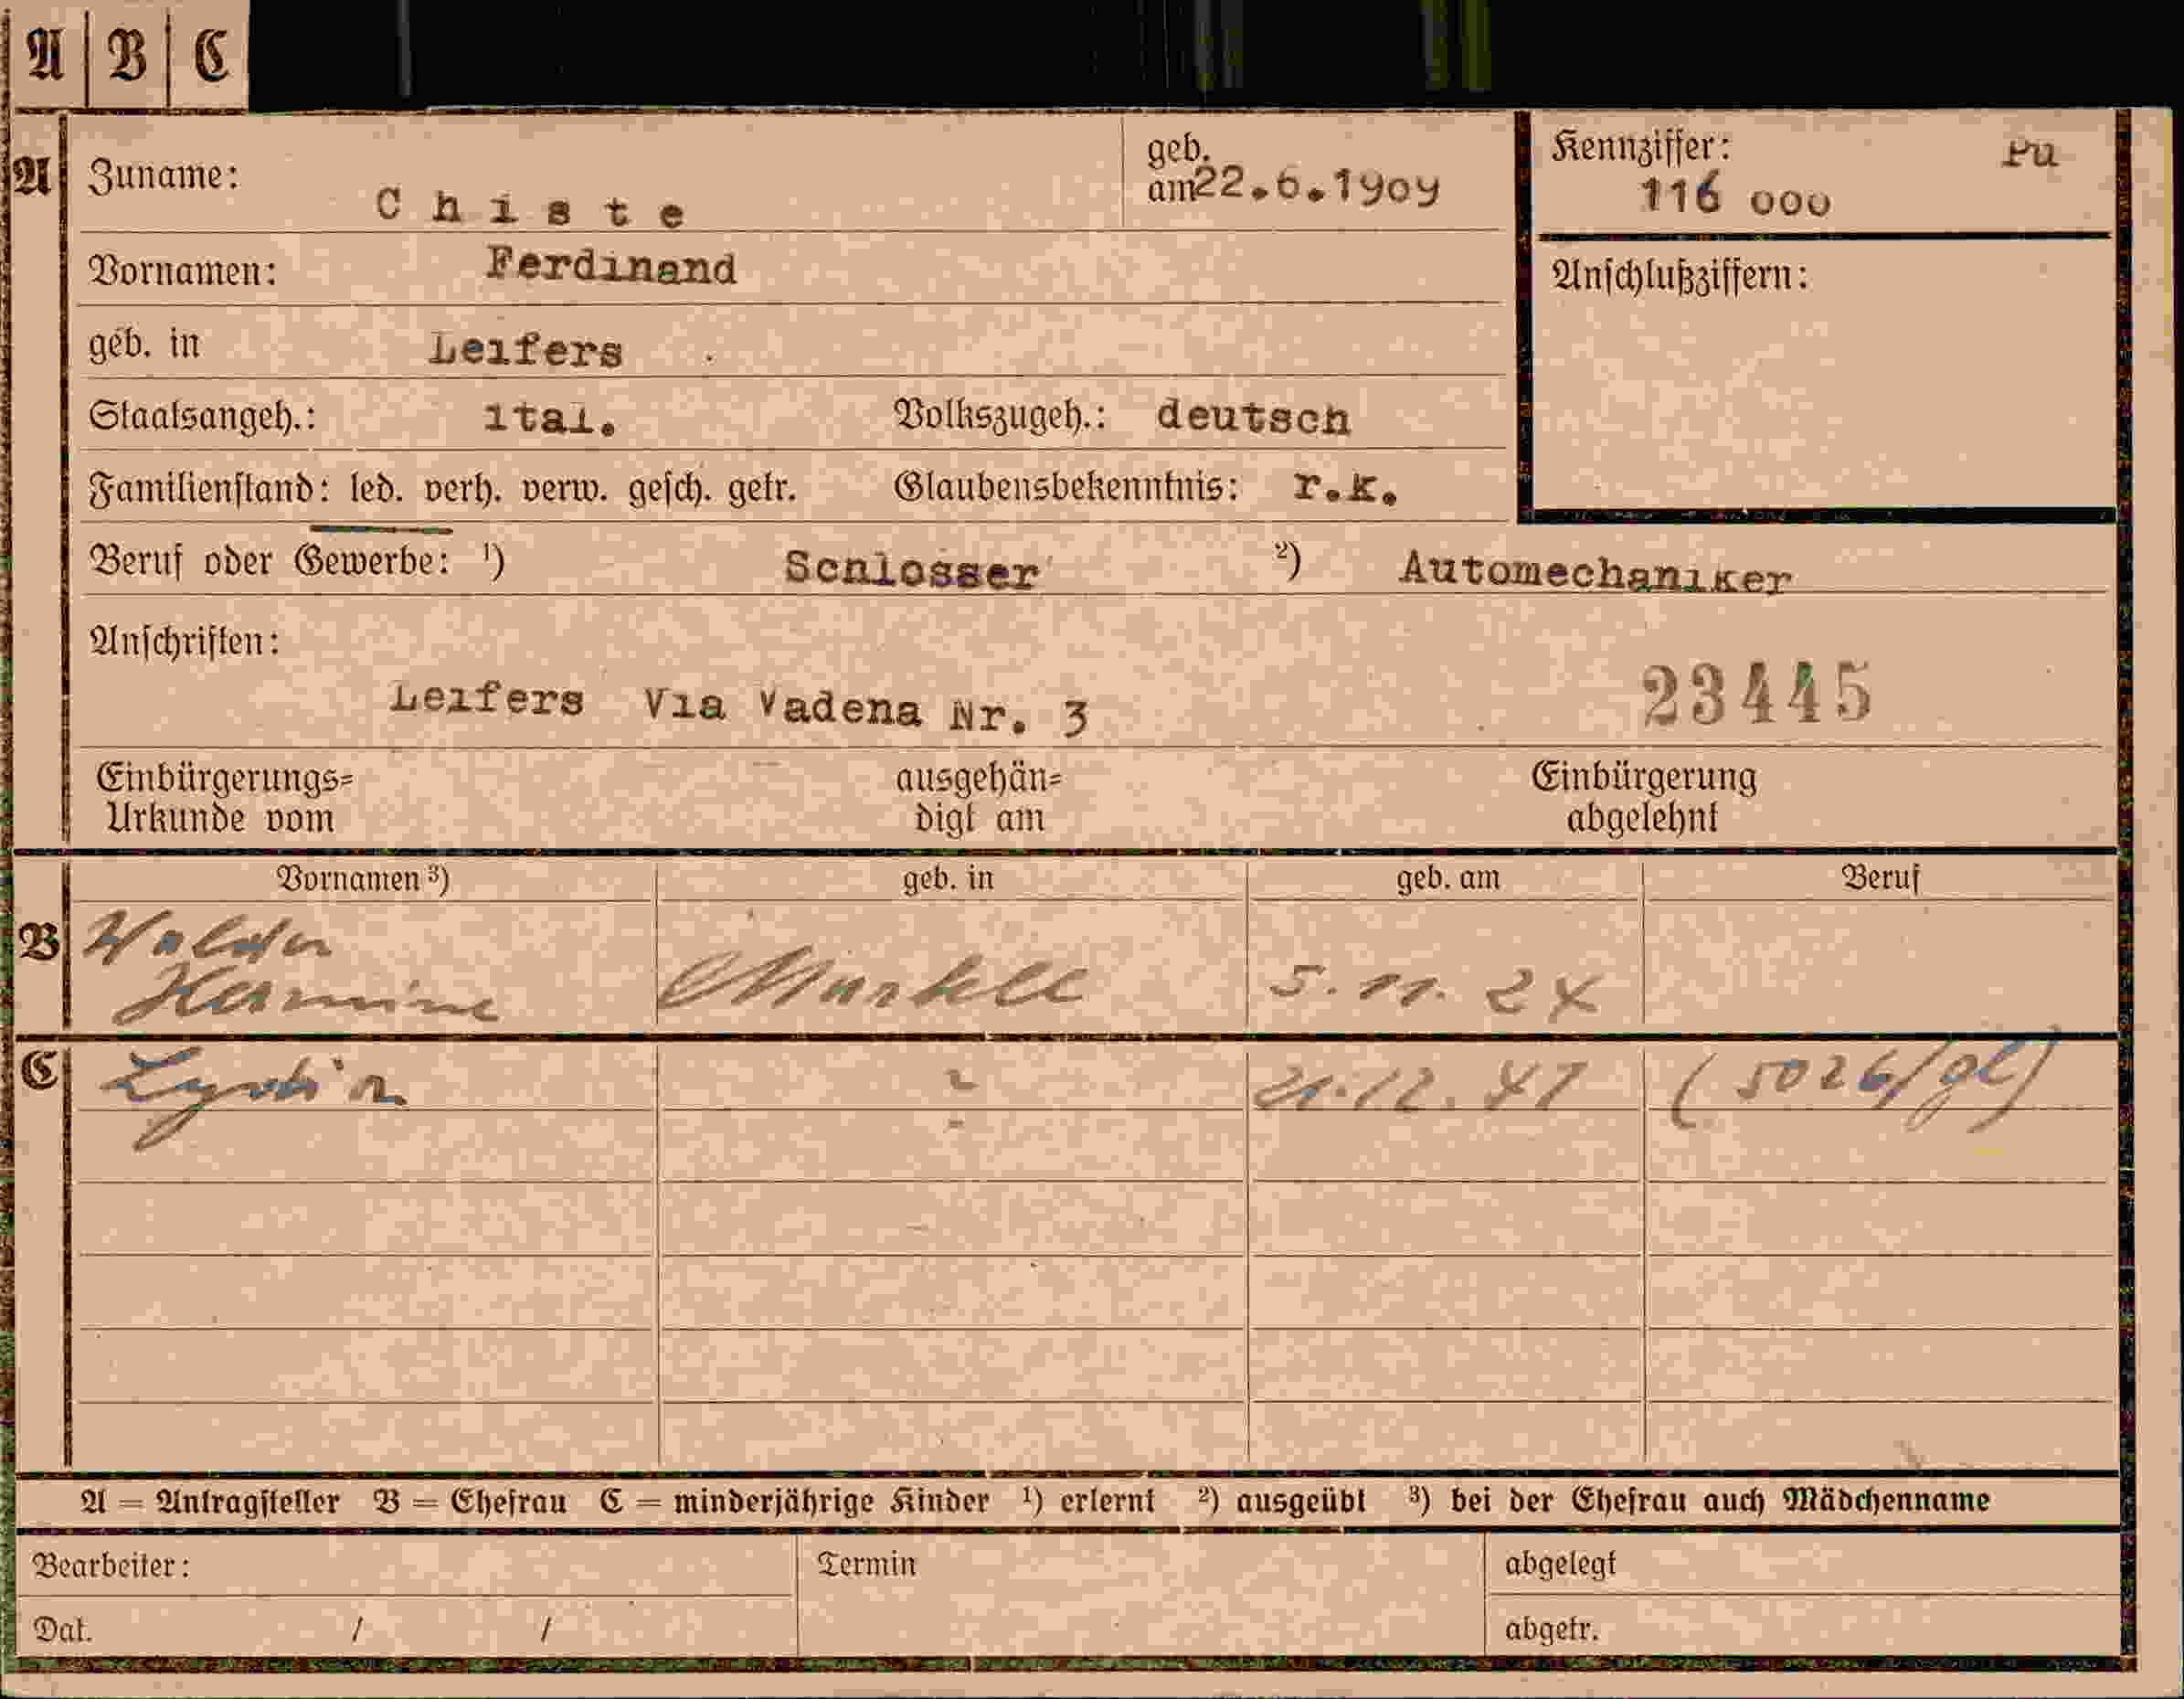 A B C
A Zuname: Chiste geb. am 22.6.1909 Kennziffer: Pu 116 000
Vornamen: Ferdinand Anschlußziffern:
geb. in Leifers
Staatsangeh.: ital. Volkszugeh.: deutsch
Familienstand: led. verh. verw. gesch. getr. Glaubensbekenntnis: r.k.
Beruf oder Gewerbe: ¹) Schlosser ²) Automechaniker
Anschriften:
Leifers Via Vadena Nr. 3 23445
Einbürgerungs= ausgehän= Einbürgerung
Urkunde vom digt am abgelehnt
Vornamen ³) geb. in geb. am Beruf
B
Hermine 5.11.24
C Lydia ? 21.12.41 (5026/gl)
A = Antragsteller B = Ehefrau C = minderjährige Kinder ¹) erlernt ²) ausgeübt ³) bei der Ehefrau auch Mädchenname
Bearbeiter: Termin abgelegt
Dat. / / abgetr.